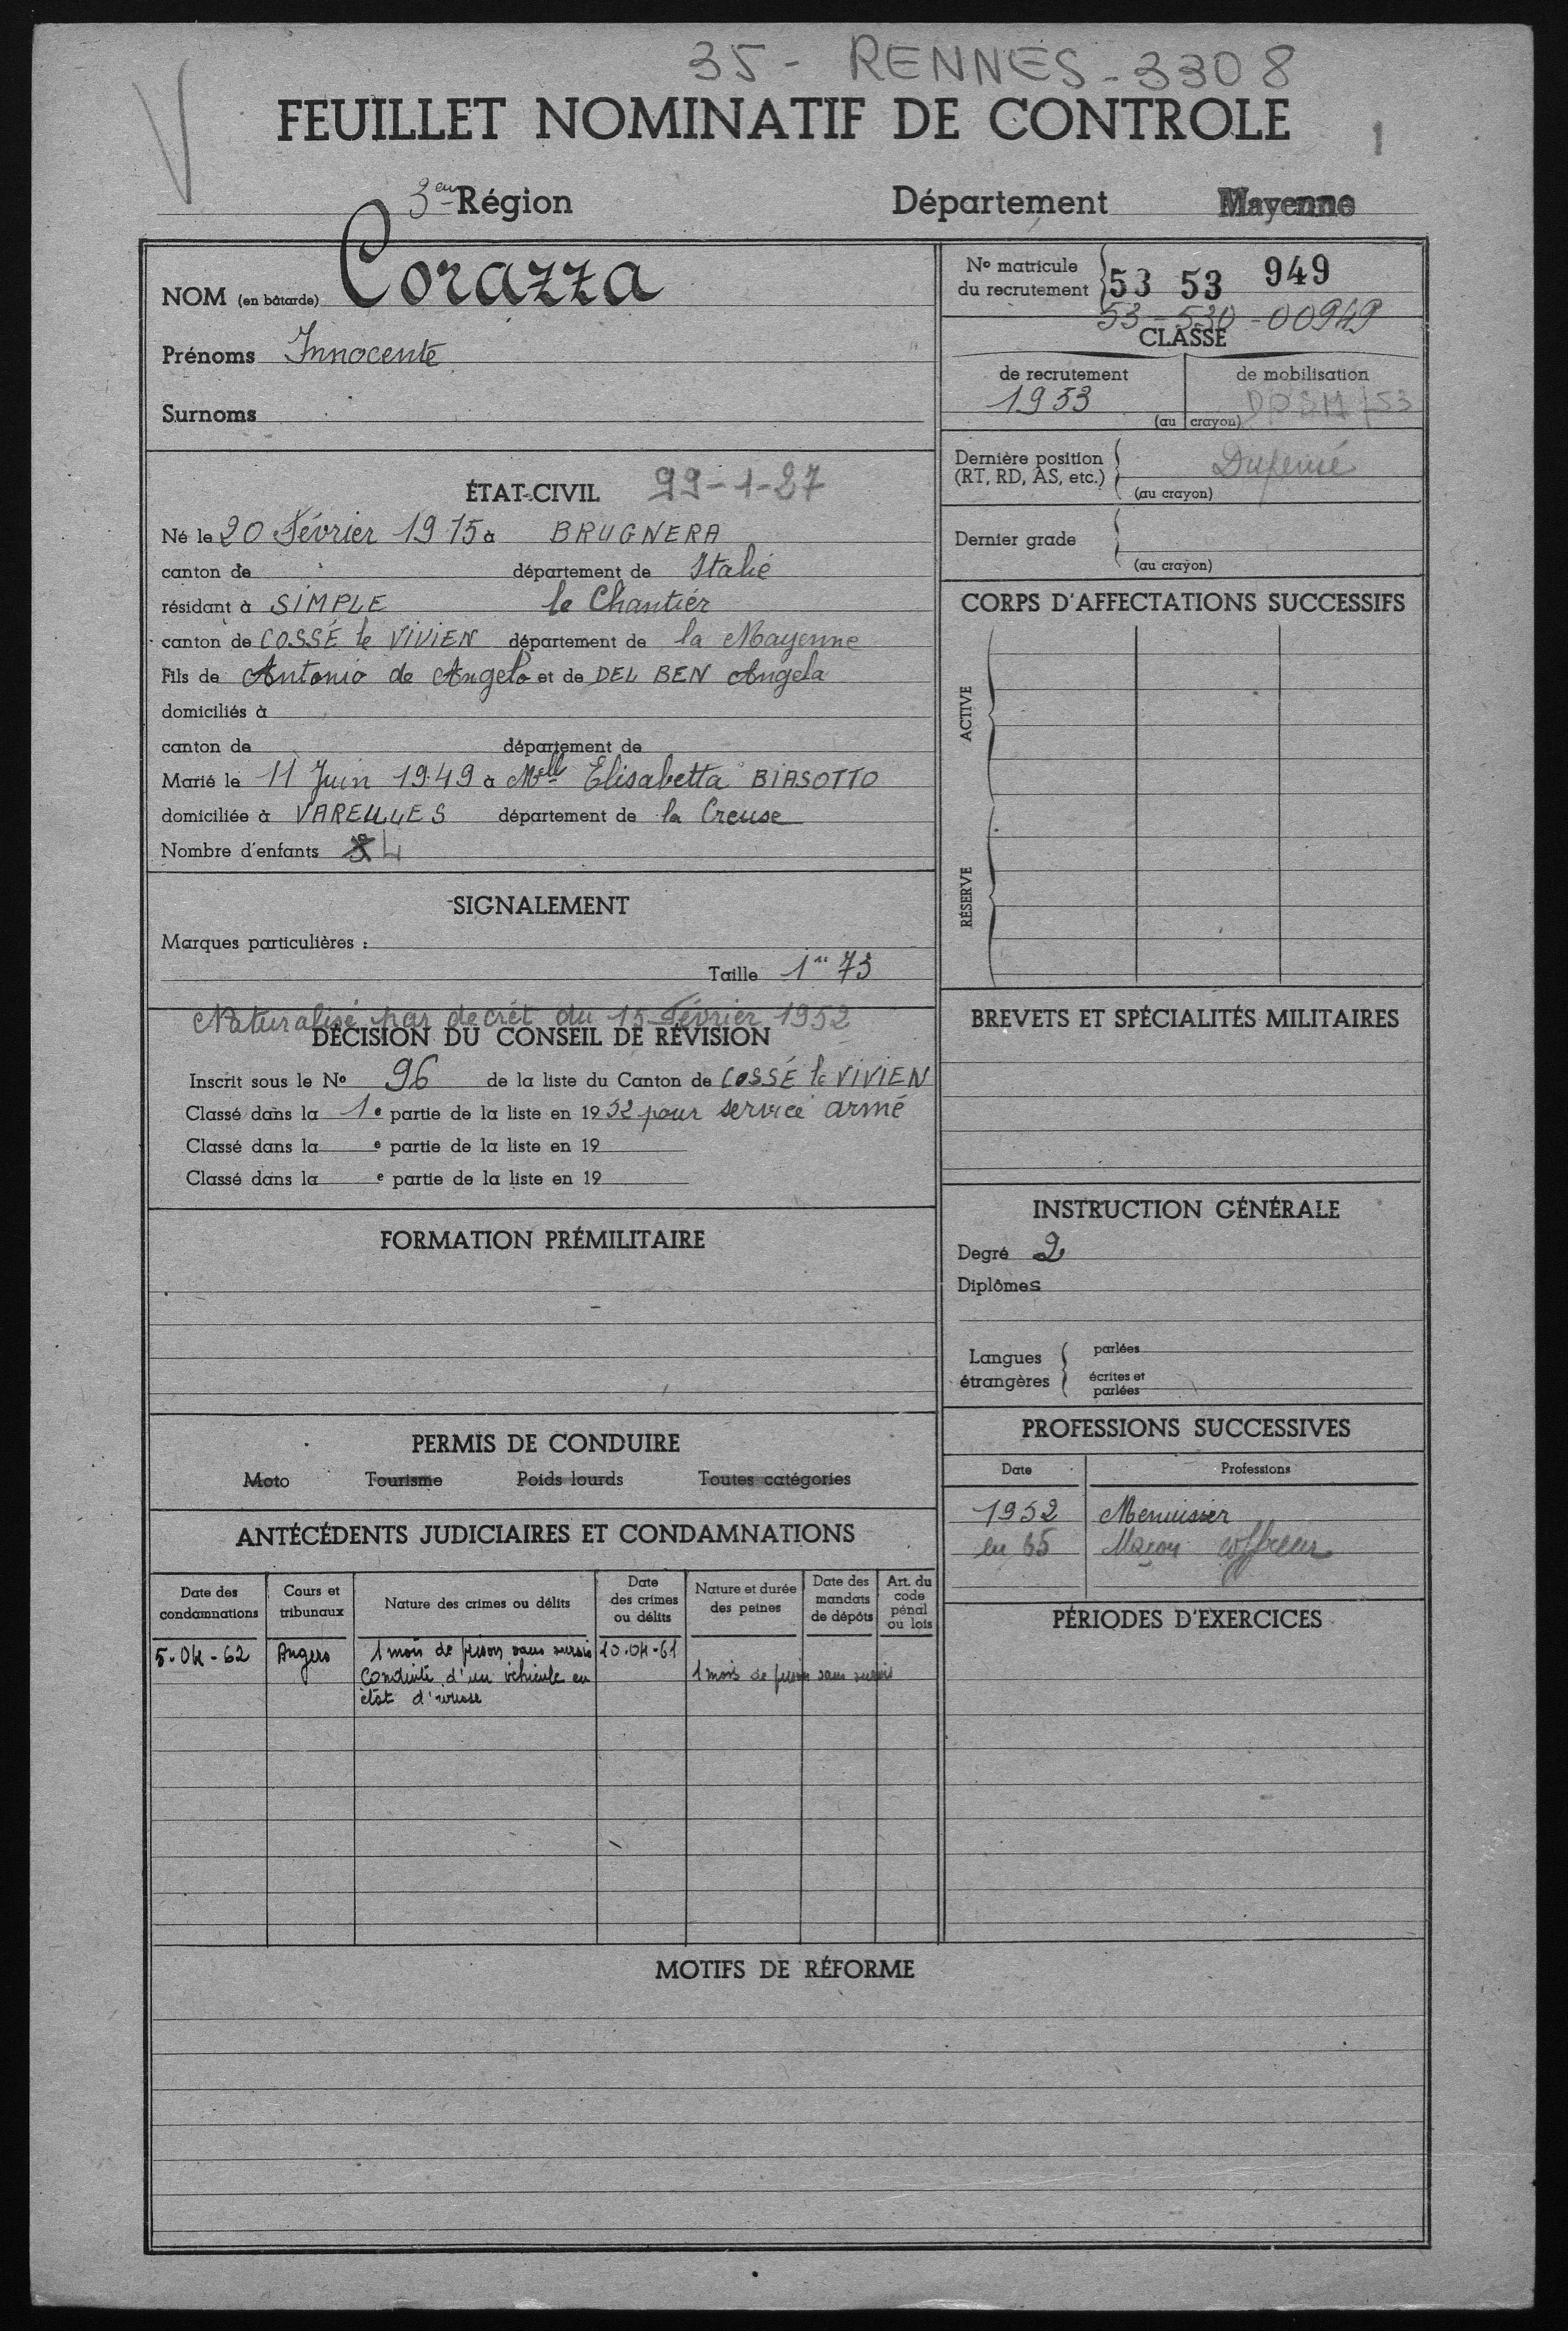 35 - RENNES - 3308
FEUILLET NOMINATIF DE CONTROLE
1
3em Région
Département Mayenne
NOM (en bâtarde) Corazza
Prénoms Innocente
Surnoms
ÉTAT-CIVIL 99-1-27
Né le 20 Février 1915 à BRUGNERA
canton de département de Italie
résidant à SIMPLE le Chantier
canton de COSSÉ le VIVIEN département de la Mayenne
Fils de Antonio de Angelo et de DEL BEN Angela
domiciliés à
canton de département de
Marié le 11 Juin 1949 à Mell Elisabetta BIASOTTO
domiciliée à VAREILLES département de la Creuse
Nombre d'enfants 4
SIGNALEMENT
Marques particulières :
Taille 1m 73
Naturalisé par decrét du 15 Février 1952
DÉCISION DU CONSEIL DE RÉVISION
Inscrit sous le No 96 de la liste du Canton de COSSÉ le VIVIEN
Classé dans la 1e partie de la liste en 1952 pour service armé
Classé dans la e partie de la liste en 19
Classé dans la e partie de la liste en 19
FORMATION PRÉMILITAIRE
PERMIS DE CONDUIRE
Moto Tourisme Poids lourds Toutes catégories
ANTÉCÉDENTS JUDICIAIRES ET CONDAMNATIONS
Date des condamnations
Cours et tribunaux
Nature des crimes ou délits
Date des crimes ou délits
Nature et durée des peines
Date des mandats de dépôts
Art. du code pénal ou lois
5-04-62 Angers 1 mois de prison sans sursis 10-04-61
Conduite d'un véhicule en 1 mois de prison sans sursis
état d'ivresse
No matricule du recrutement 53 53 949
53-530-00949
CLASSE
de recrutement
1953
de mobilisation
/53
(au crayon)
Dernière position (RT, RD, AS, etc.)
(au crayon)
Dernier grade
(au crayon)
CORPS D'AFFECTATIONS SUCCESSIFS
ACTIVE
RÉSERVE
BREVETS ET SPÉCIALITÉS MILITAIRES
INSTRUCTION GÉNÉRALE
Degré 2
Diplômes
Langues étrangères
parlées
écrites et parlées
PROFESSIONS SUCCESSIVES
Date Professions
1952 Menuisier
en 65 Maçon coffreur
PÉRIODES D'EXERCICES
MOTIFS DE RÉFORME